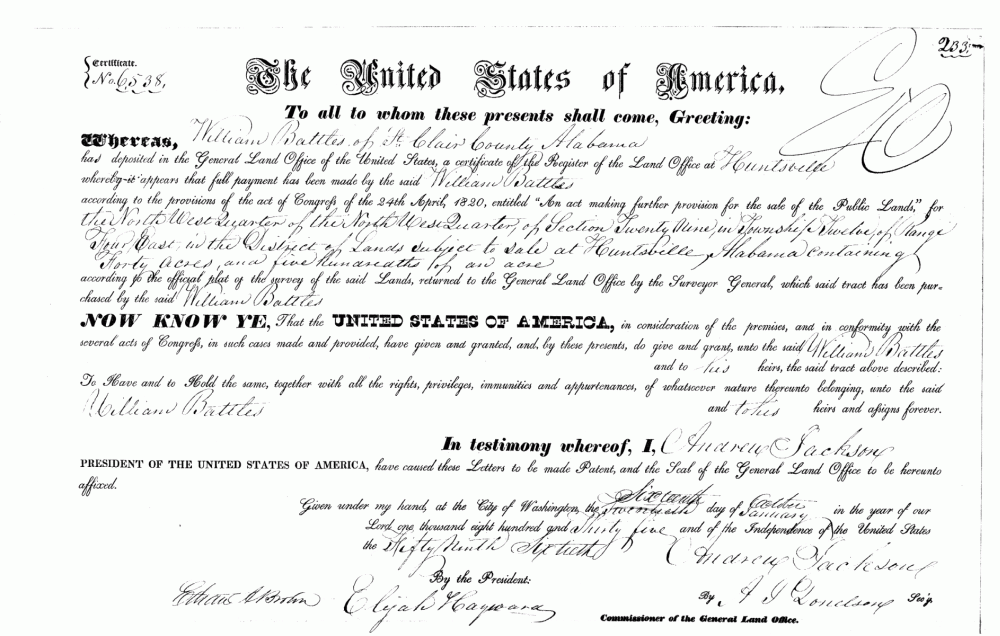 233
Certificate.
No. 6538,
The United States of America,
To all to whom these presents shall come, Greeting:
Whereas, William Battles, of St. Clair County, Alabama
has deposited in the General Land Office of the United States, a certificate of the Register of the Land Office at Huntsville
whereby it appears that full payment has been made by the said William Battles
according to the provisions of the act of Congress of the 24th April, 1820, entitled "An act making further provision for the sale of the Public Lands," for
the North West Quarter of the North West Quarter, of Section Twenty Nine, in Township Twelve, of Range
Four, East, in the District of Lands subject to sale at Huntsville, Alabama containing
Forty acres, and five hundredths of an acre
according to the official plat of the survey of the said Lands, returned to the General Land Office by the Surveyor General, which said tract has been pur-
chased by the said William Battles
NOW KNOW YE, That the UNITED STATES OF AMERICA, in consideration of the premises, and in conformity with the
several acts of Congress, in such cases made and provided, have given and granted, and, by these presents, do give and grant, unto the said William Battles
and to his heirs, the said tract above described:
To Have and to Hold the same, together with all the rights, privileges, immunities and appurtenances, of whatsoever nature thereunto belonging, unto the said
William Battles and to his heirs and assigns forever.
In testimony whereof, I, Andrew Jackson
PRESIDENT OF THE UNITED STATES OF AMERICA, have caused these Letters to be made Patent, and the Seal of the General Land Office to be hereunto
affixed.
Sixteenth October
Given under my hand, at the City of Washington, the Twentieth day of January in the year of our
Lord one thousand eight hundred and Thirty five and of the Independence of the United States
the Fifty Ninth Sixtieth Andrew Jackson
By the President:
Ethan A Brown Elijah Hayward By A J Donelson Sec'y.
Commissioner of the General Land Office.